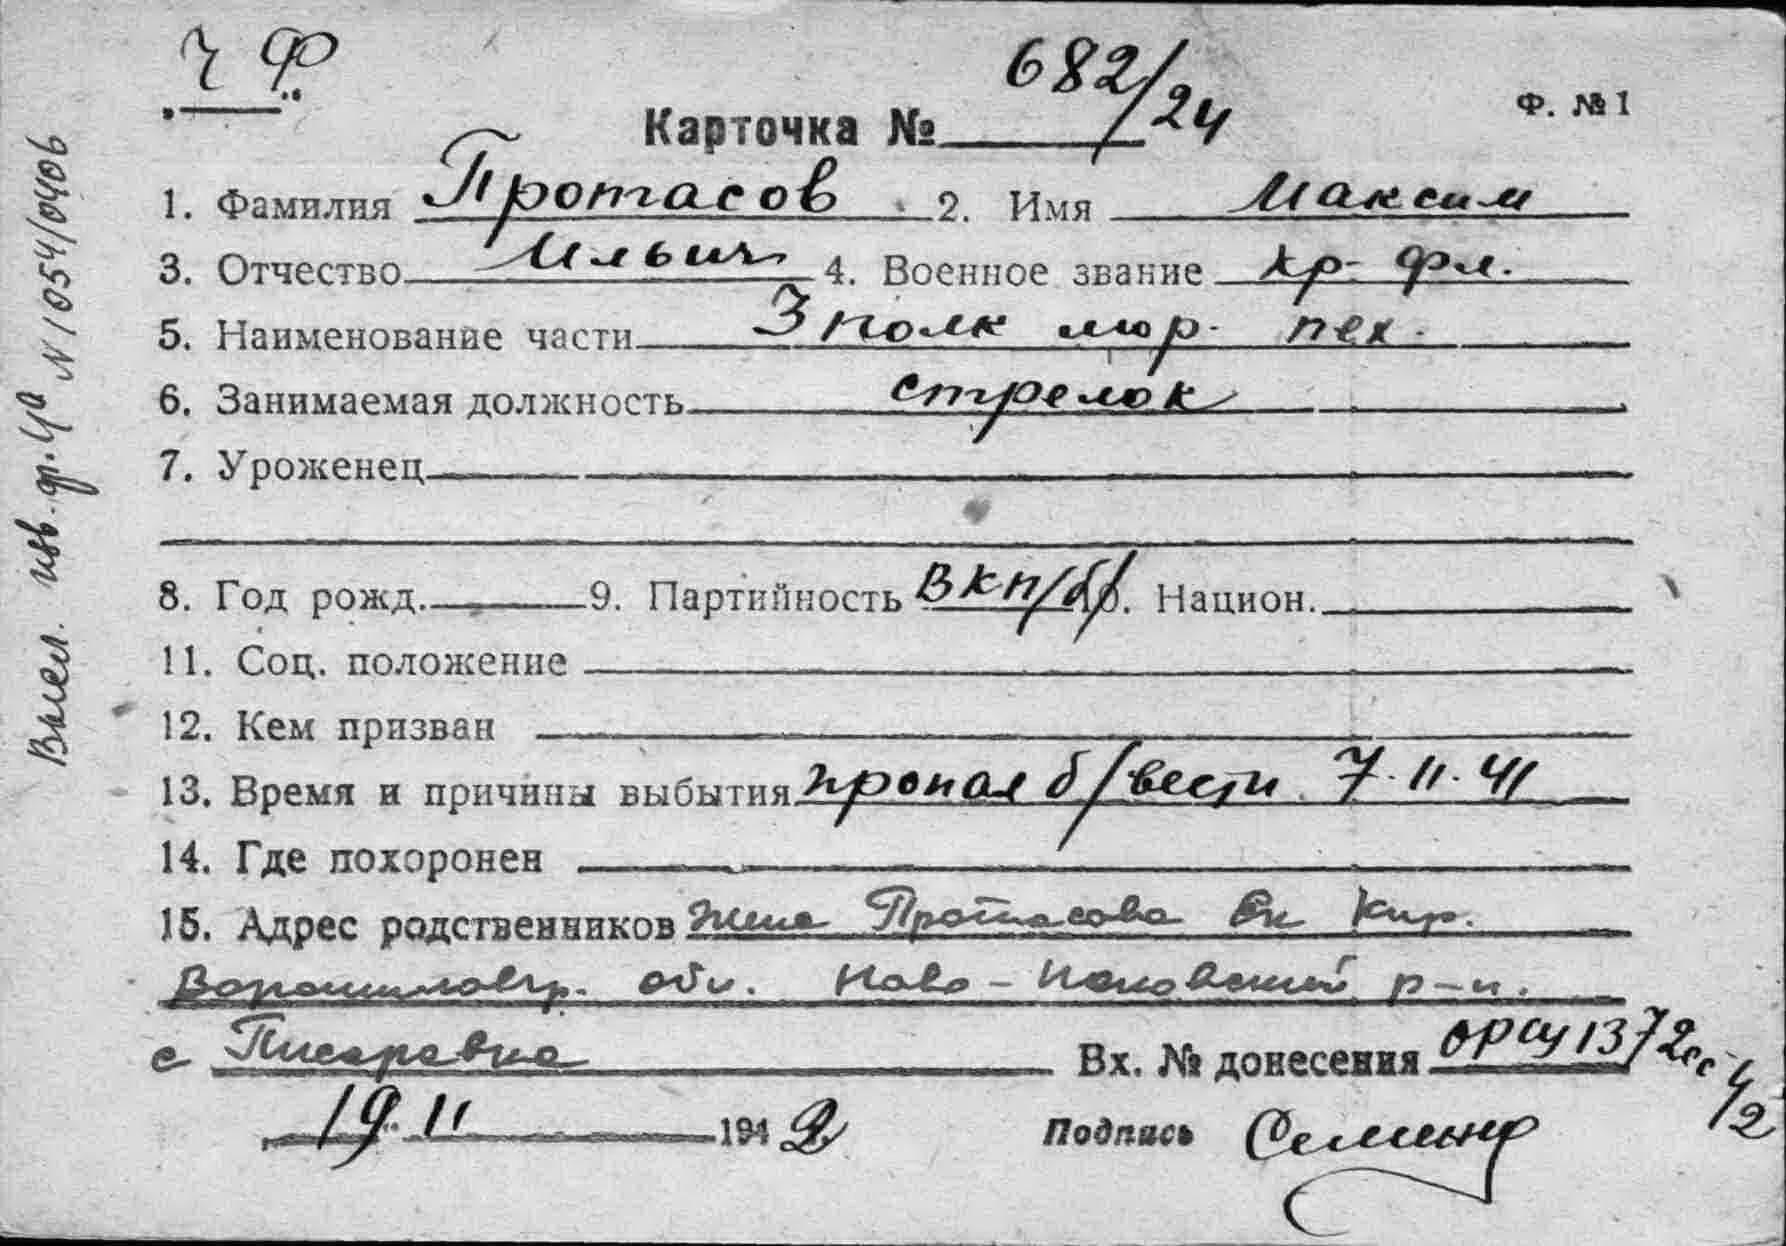 Ч Ф
Карточка № 682/24
Ф. №1
1. Фамилия Протасов 2. Имя Максим
3. Отчество Ильич 4. Военное звание кр-фл.
5. Наименование части 3 полк мор. пех.
6. Занимаемая должность стрелок
7. Уроженец
8. Год рожд. 9. Партийность ВКП/б/ 10. Национ.
11. Соц. положение
12. Кем призван
13. Время и причины выбытия пропал б/вести 7.11.41
14. Где похоронен
15. Адрес родственников Жена Протасова Ек Кир.
Ворошиловгр. обл. Ново-Псковский р-н.
с Писаревка Вх. № донесения 1372сс
4/2
19 11 1942 Подпись
Высл. изв. №1054/0406